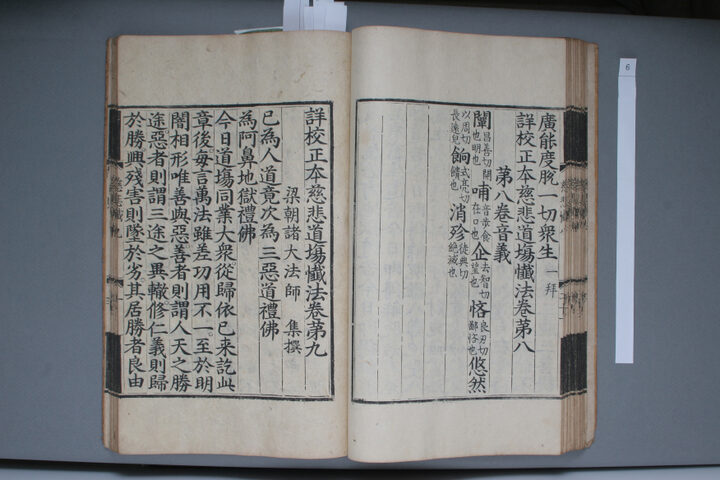 廣能度脫一切衆生 一拜
詳校正本慈悲道塲懺法卷第八
第八卷音義
闡昌善切開也明也 哺音步食在口也 企去智切望也 悋良刃切鄙悋也 悠然
以周切長遠皃 餉式亮切饋也 消殄徒典切絕滅也
詳校正本慈悲道塲懺法卷第九
梁朝諸大法師 集撰
已為人道竟次為三惡道禮佛
為阿鼻地獄禮佛
今日道塲同業大衆從歸依已來訖此
章後每言萬法雖差功用不一至於明
闇相形唯善與惡善者則謂人天之勝
途惡者則謂三途之異轍修仁義則歸
於勝興殘害則墜於劣其居勝者良由
6